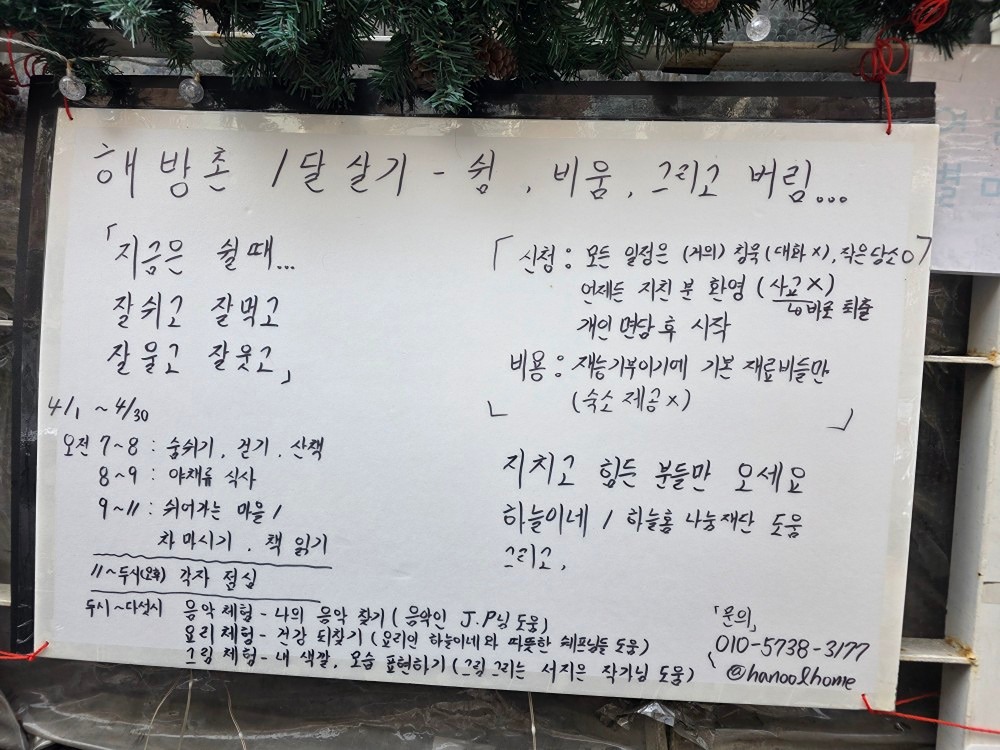 해방촌 1달 살기 - 쉼, 비움, 그리고 버림...
「지금은 쉴때...
잘쉬고 잘먹고
잘울고 잘웃고」
4/1 ~ 4/30
오전 7~8 : 숨쉬기, 걷기, 산책
8~9 : 야채류 식사
9~11 : 쉬어가는 마을 /
차 마시기, 책 읽기
11~두시(오후) 각자 점심
두시~다섯시 음악 체험 - 나의 음악 찾기 (음악인 J.P님 도움)
요리 체험 - 건강 되찾기 (요리인 하늘이네와 따뜻한 쉐프님들 도움)
그림 체험 - 내 색깔, 모습 표현하기 (그림 그리는 서지은 작가님 도움)
「신청 : 모든 일정은 (거의) 침묵 (대화 x), 작은담소 o
언제든 지친 분 환영 (사교 x)
↳ 바로 퇴출
개인 면담 후 시작
비용 : 재능기부이기에 기본 재료비들만
(숙소 제공 x)」
지치고 힘든 분들만 오세요
하늘이네 / 하늘홈 나눔재단 도움
그리고,
「문의」
010-5738-3177
@hanoolhome